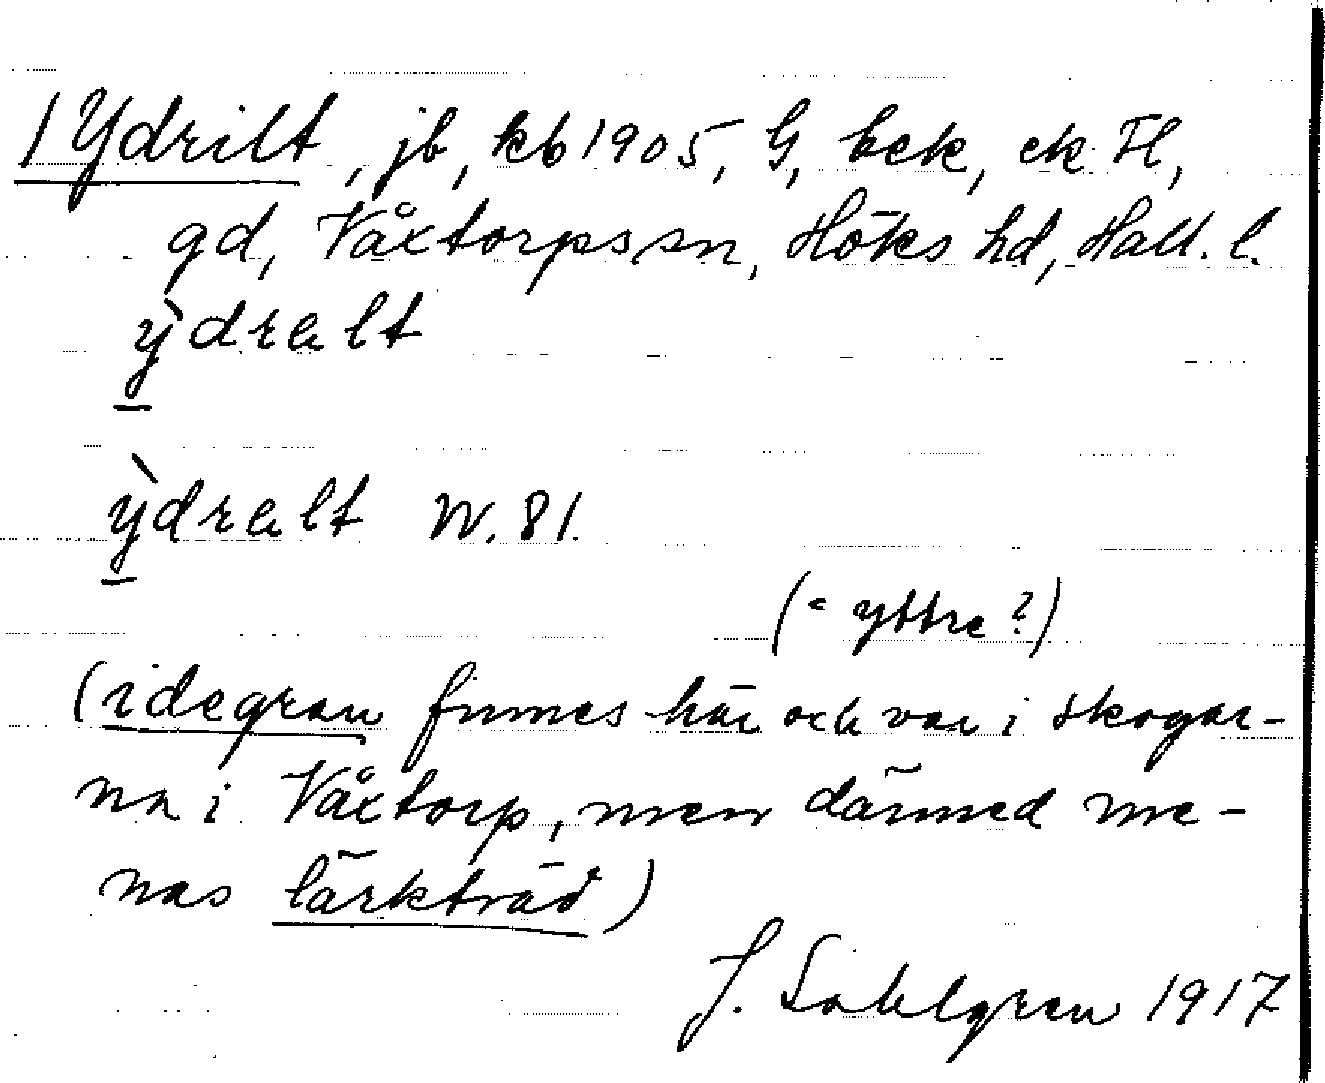 / Ydrilt, jb, kb 1905, G, bek, ek Hl,
gd, Våxtorps sn, Höks hd, Hall. l.
ỳdralt
ỳdralt W. 81.
(= yttre?)
(idegran finnes här och var i skogar-
na i Våxtorp, men därmed me-
nas lärkträd)
J. Sahlgren 1917